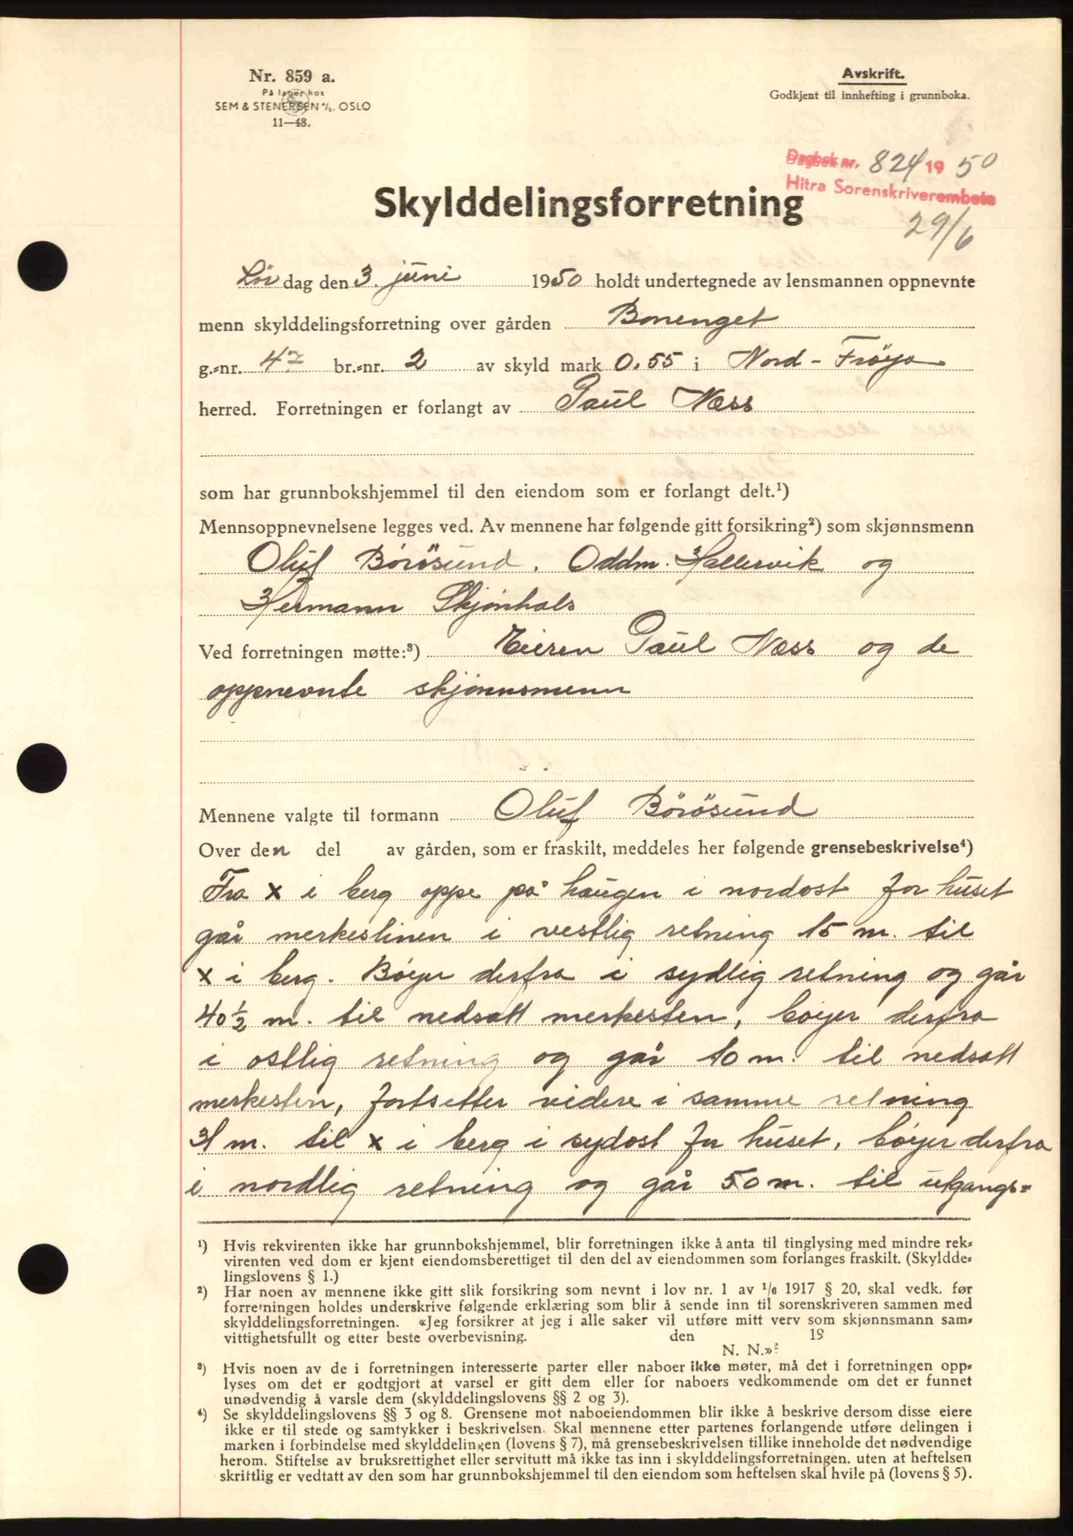 Nr. 859 a.
På lager hos
SEM & STENERSEN A/S. OSLO
11—48.
Avskrift.
Godkjent til innhefting i grunnboka.
Dagbok nr. 824 19 50
Hitra Sorenskriverembete
29/6
Skylddelingsforretning
Lør dag den 3. juni 1950 holdt undertegnede av lensmannen oppnevnte
menn skylddelingsforretning over gården Bonenget
g.=nr. 47 br.=nr. 2 av skyld mark 0.55 i Nord - Frøya
herred. Forretningen er forlangt av Paul Næss
som har grunnbokshjemmel til den eiendom som er forlangt delt.¹)
Mennsoppnevnelsene legges ved. Av mennene har følgende gitt forsikring²) som skjønnsmenn
Oluf Börösund, Oddm. Hallervik og
Hermann Skjönhals
Ved forretningen møtte:³) Eieren Paul Næss og de
oppnevnte skjønnsmenn
Mennene valgte til formann Oluf Börösund
Over den del av gården, som er fraskilt, meddeles her følgende grensebeskrivelse⁴)
Fra x i berg oppe på haugen i nordost for huset
går merkeslinen i vestlig retning 15 m. til
x i berg. Bøyer derfra i sydlig retning og går
40 ½ m. til nedsatt merkesten, bøyer derfra
i ostlig retning og går 10 m. til nedsatt
merkesten, fortsetter videre i samme retning
31 m. til x i berg i sydost for huset, bøyer derfra
i nordlig retning og går 50 m. til utgangs=
¹) Hvis rekvirenten ikke har grunnbokshjemmel, blir forretningen ikke å anta til tinglysing med mindre rek=
virenten ved dom er kjent eiendomsberettiget til den del av eiendommen som forlanges fraskilt. (Skyldde=
lingslovens § 1.)
²) Har noen av mennene ikke gitt slik forsikring som nevnt i lov nr. 1 av 1/6 1917 § 20, skal vedk. før
forretningen holdes underskrive følgende erklæring som blir å sende inn til sorenskriveren sammen med
skylddelingsforretningen. «Jeg forsikrer at jeg i alle saker vil utføre mitt verv som skjønnsmann sam=
vittighetsfullt og etter beste overbevisning. den 19
N. N.»
³) Hvis noen av de i forretningen interesserte parter eller naboer ikke møter, må det i forretningen opp=
lyses om det er godtgjort at varsel er gitt dem eller for naboers vedkommende om det er funnet
unødvendig å varsle dem (skylddelingslovens §§ 2 og 3).
⁴) Se skylddelingslovens §§ 3 og 8. Grensene mot naboeiendommen blir ikke å beskrive dersom disse eiere
ikke er til stede og samtykker i beskrivelsen. Skal mennene etter partenes forlangende utføre delingen i
marken i forbindelse med skylddelingen (lovens § 7), må grensebeskrivelsen tillike inneholde det nødvendige
herom. Stiftelse av bruksrettighet eller servitutt må ikke tas inn i skylddelingsforretningen. uten at heftelsen
skriftlig er vedtatt av den som har grunnbokshjemmel til den eiendom som heftelsen skal hvile på (lovens § 5).